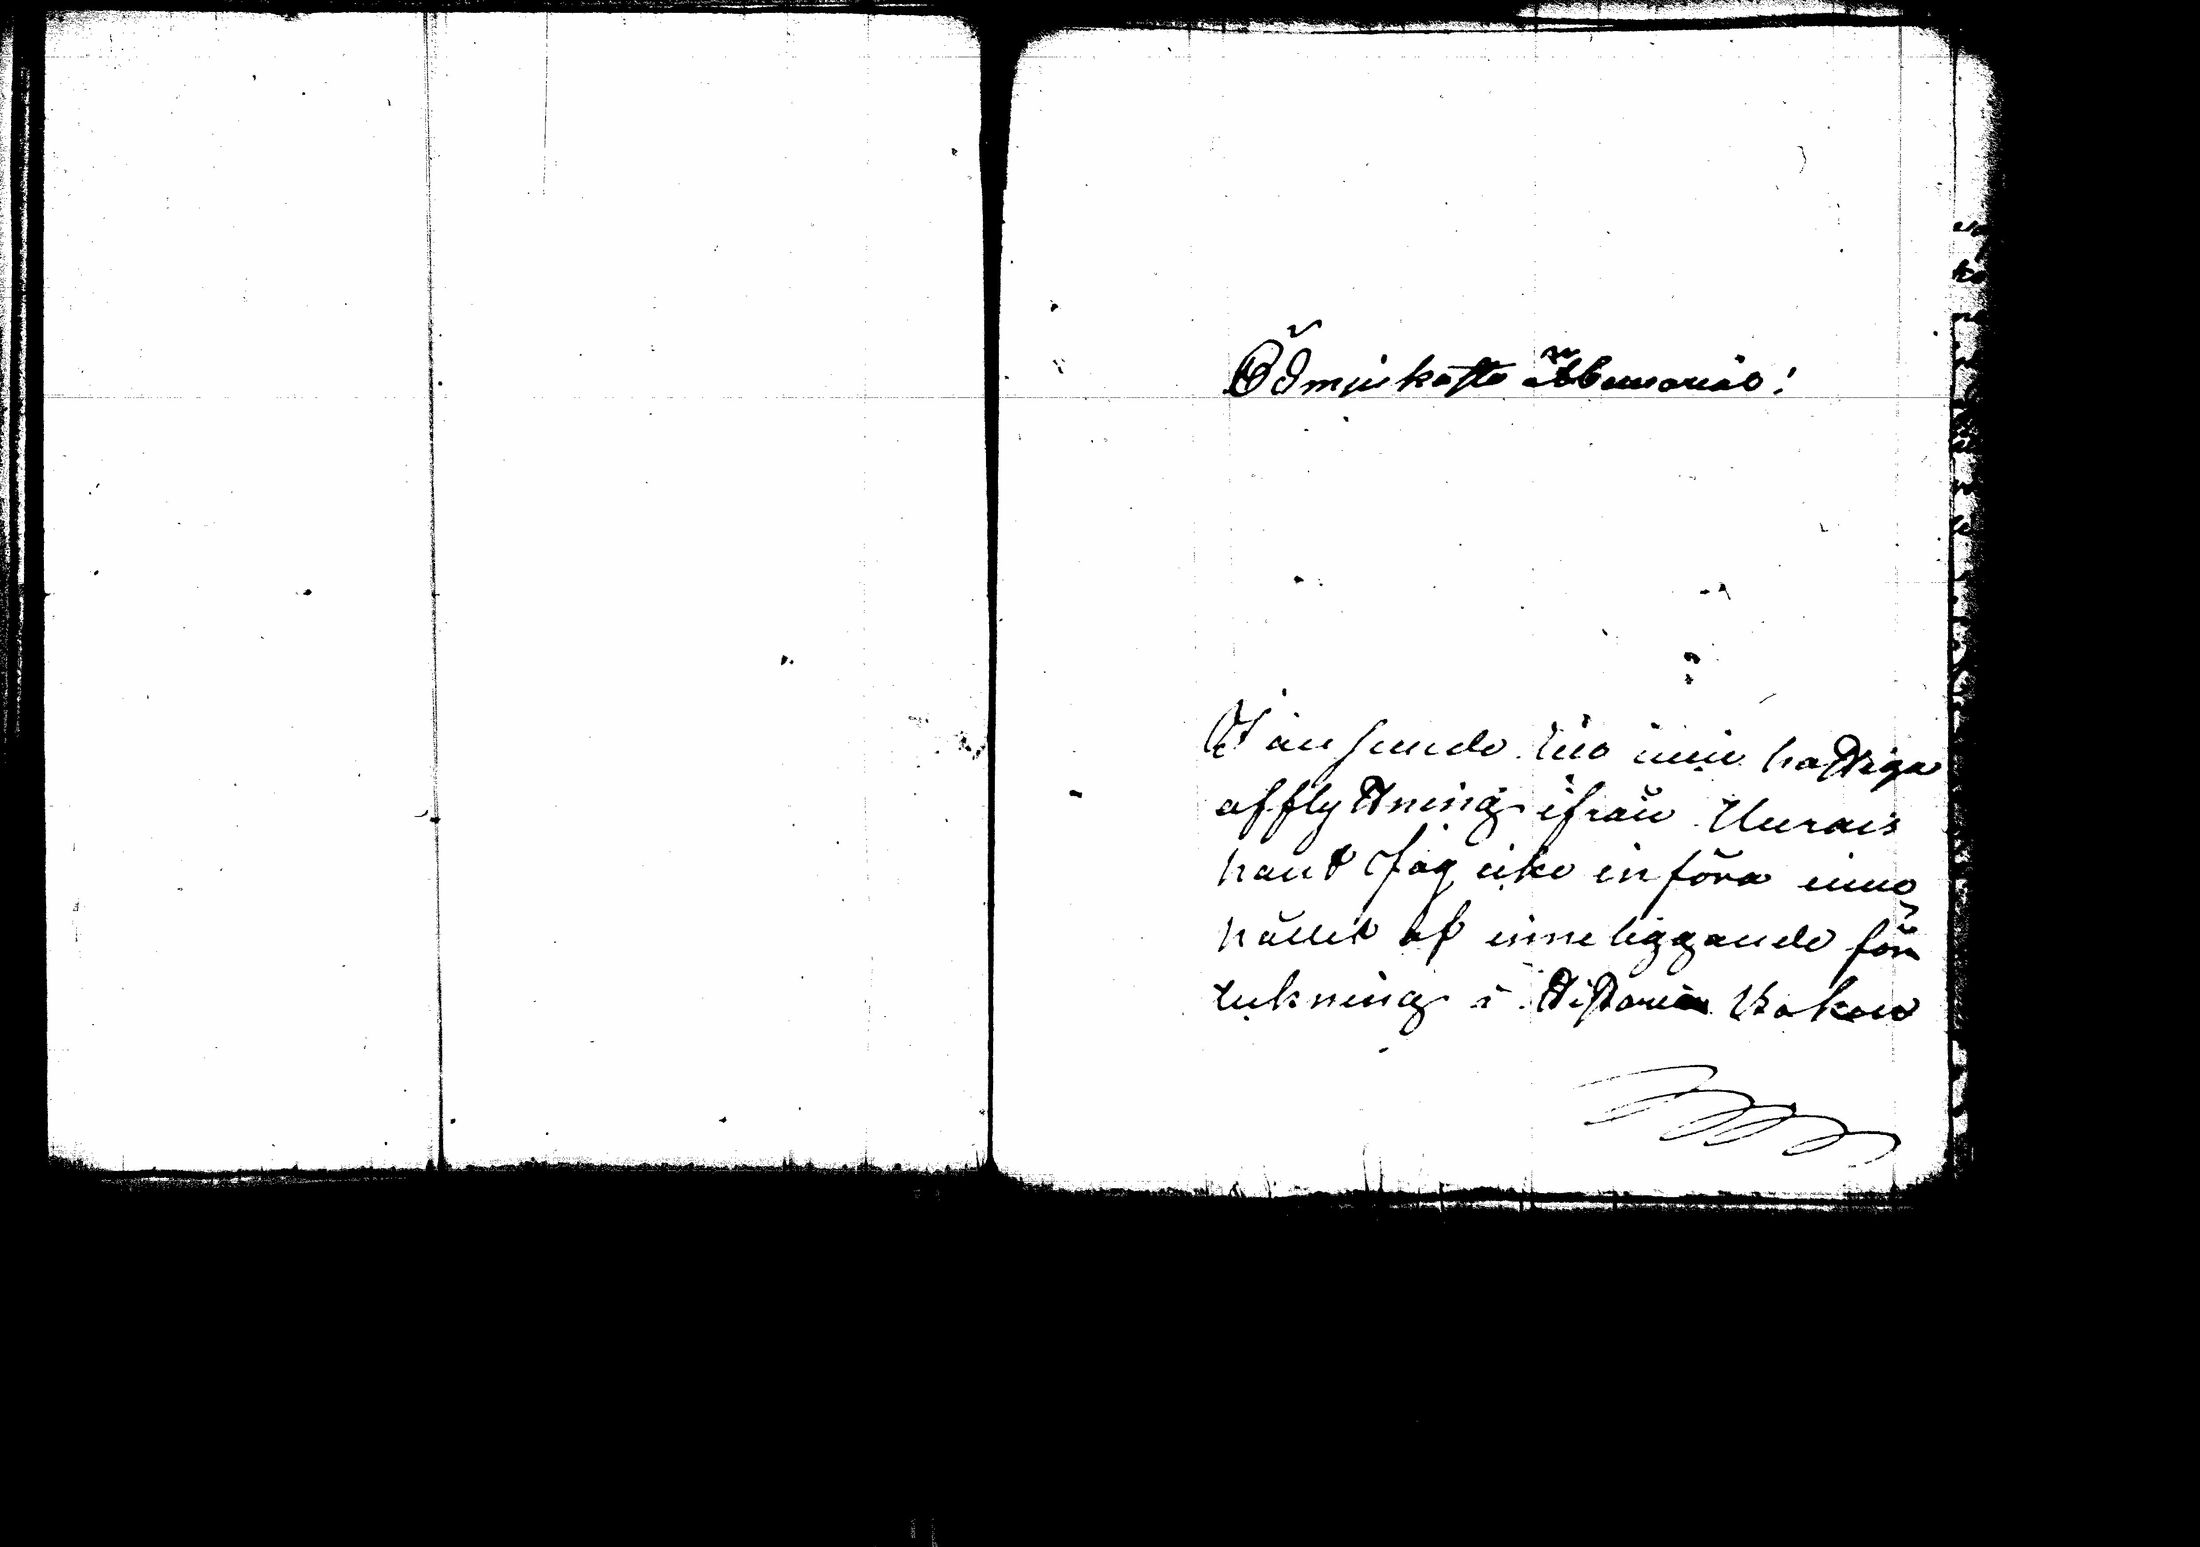 Ödmjukaste Memorial!
I anseende till min hastiga
afflyttning ifrån Uurais
hant Jag icke införa inne
hållet af inneliggande för
tekning i Historie Boken